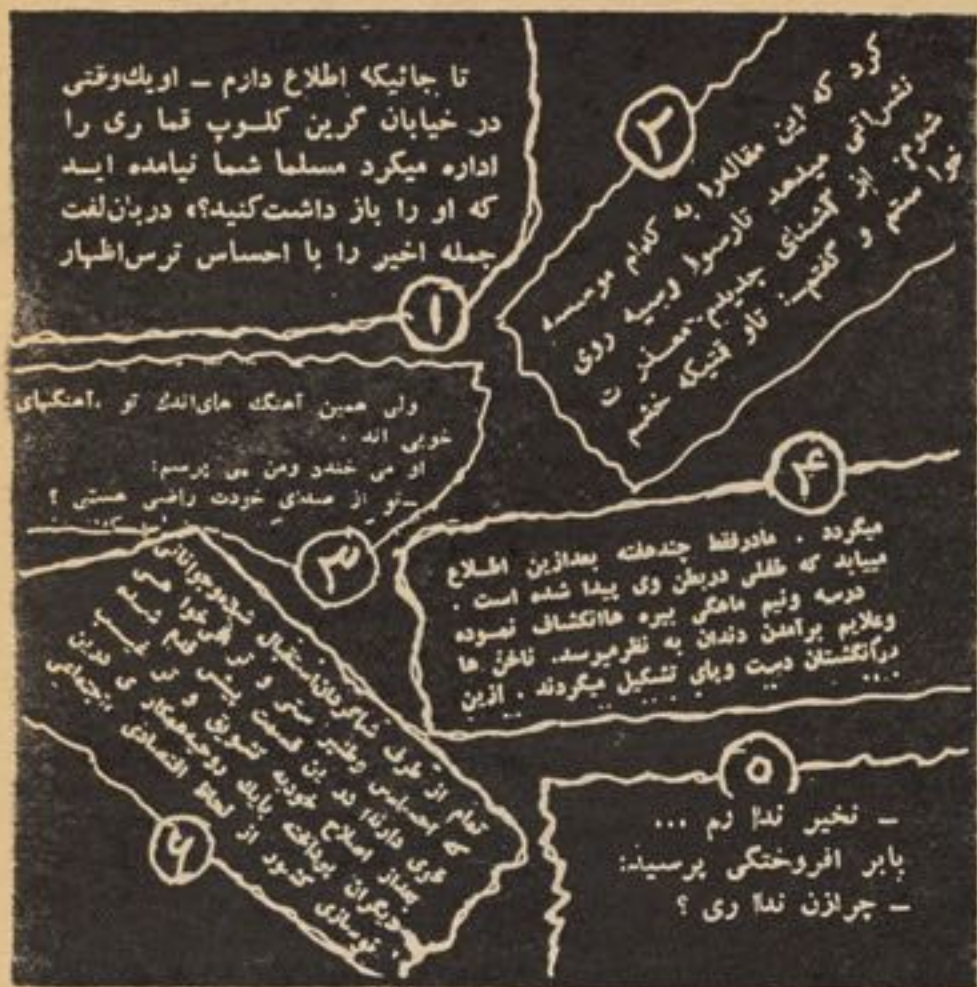 تا جائیکه اطلاع دارم – او یك‌وقتی
در خیابان گرین کلوپ قما ری را
اداره میکرد مسلما شما نیامده ایـد
که او را باز داشت کنید؟» دربان‌لفت
جمله اخیر را با احساس ترس‌اظهار
۱
۲
کرد که این مقاله‌را به کدام موسسه
نشراتی میدهد تارسوا وسیه روی
شوم. از آشنای جدیدم معـذر ت
خوا ستم و گفتم: تاو قتیکه خشم
ولی همین آهنگ های‌اندك تو ،آهنگهای
خوبی اند .
او می خندد ومن می پرسم:
–تو از صدای خودت راضی هستی ؟
۳
۴
میگردد . مادرفقط چندهفته بعدازین اطـلاع
مییابد که طفلی دربطن وی پیدا شده است .
درسه ونیم ماهگی بیره هاانکشاف نموده
وعلایم برآمدن دندان به نظرمیرسد. ناخن ها
درانگشتان دست وپای تشکیل میگردند . ازین
۵
– نخیر ندا رم ...
بابر افروختگی پرسید:
– چرازن ندا ری ؟
تمام از طرف شاگردان‌استقبال شده‌وجوانانی
احساس وطنپر ستی و تر قی‌خوا هی
دارند در ین قسمت پیش قدم شده
بعداز اصلاح خودبه تشویق و تر غیب
دیگران پرداخته بایك روحیه‌همکار ی درین
نوسازی کشور از لحاظ اقتصادی
۶